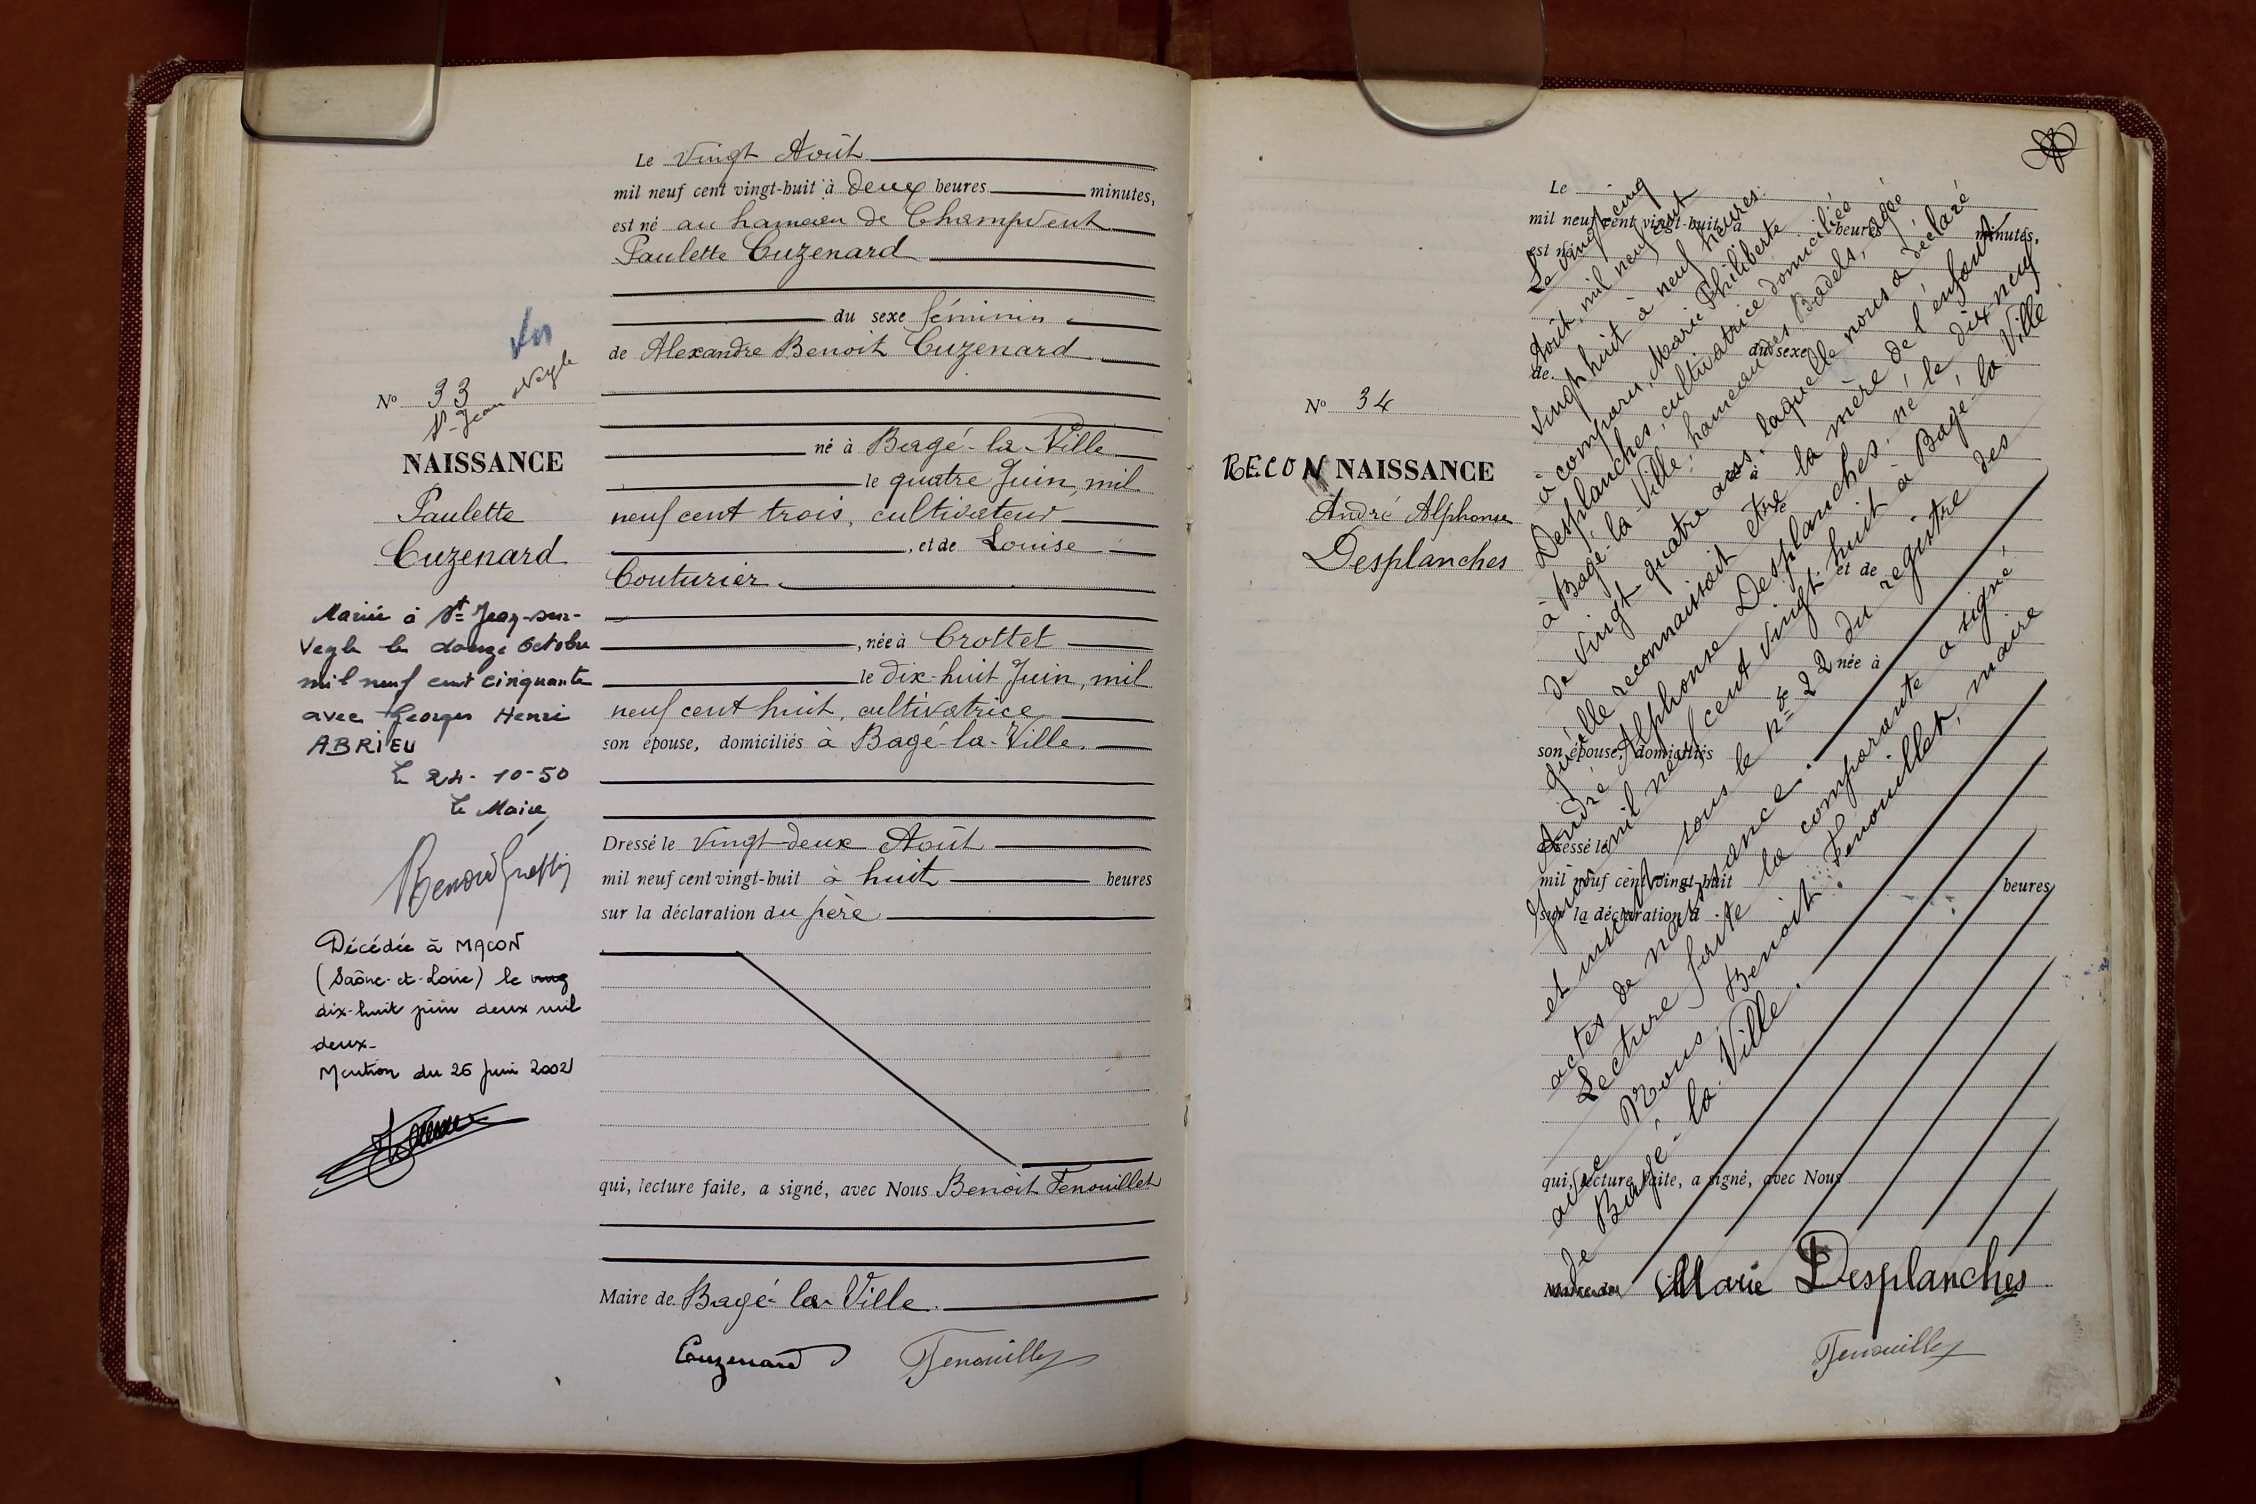 Le vingt Août
mil neuf cent vingt-huit à deux heures minutes,
est né au hameau de Champvent
Paulette Cuzenard
du sexe féminin
de Alexandre Benoit Cuzenard
né à Bagé-la-Ville
le quatre Juin, mil
neuf cent trois, cultivateur
, et de Louise
Couturier
, née à Crottet
le dix-huit Juin, mil
neuf cent huit, cultivatrice
son épouse, domiciliés à Bagé-la-Ville.
Dressé le vingt-deux Août
mil neuf cent vingt-huit à huit heures
sur la déclaration du père
qui, lecture faite, a signé, avec Nous Benoit Fenouillet
Maire de Bagé-la-Ville.
Cuzenard Fenouillet
No 33
St-Jean s/Veyle
NAISSANCE
Paulette
Cuzenard
Mariée à St Jean-sur-
Veyle le douze Octobre
mil neuf cent cinquante
avec Georges Henri
ABRIEU
Le 24-10-50
Le Maire
Décédée à MACON
(Saône-et-Loire) le ving
dix-huit juin deux mil
deux-
Mention du 26 Juin 2002
No 34
RECON NAISSANCE
André Alphonse
Desplanches
Le vingt cinq
Août, mil neuf cent
vingt huit à neuf heures.
a comparu, Marie Philiberte
Desplanches, cultivatrice domiciliée
à Bagé-la-Ville, hameau des Badels, agée
de vingt-quatre ans, laquelle nous a déclaré
qu'elle reconnaissait être la mère de l'enfant
André Alphonse Desplanches, né le dix neuf
Juin mil neuf cent vingt-huit à Bagé-la-Ville
et inscrit sous le no 22 du registre des
actes de naissance.
Lecture faite la comparante a signé
avec Nous, Benoit Fenouillet, maire
de Bagé-la-Ville.
Le
mil neuf cent vingt-huit à heures minutes,
est né
du sexe
de
né à
le
et de
née à
son épouse, domiciliés
Dressé le
mil neuf cent vingt-huit heures
sur la déclaration d
qui, lecture faite, a signé, avec Nous
Marie Desplanches
Fenouillet